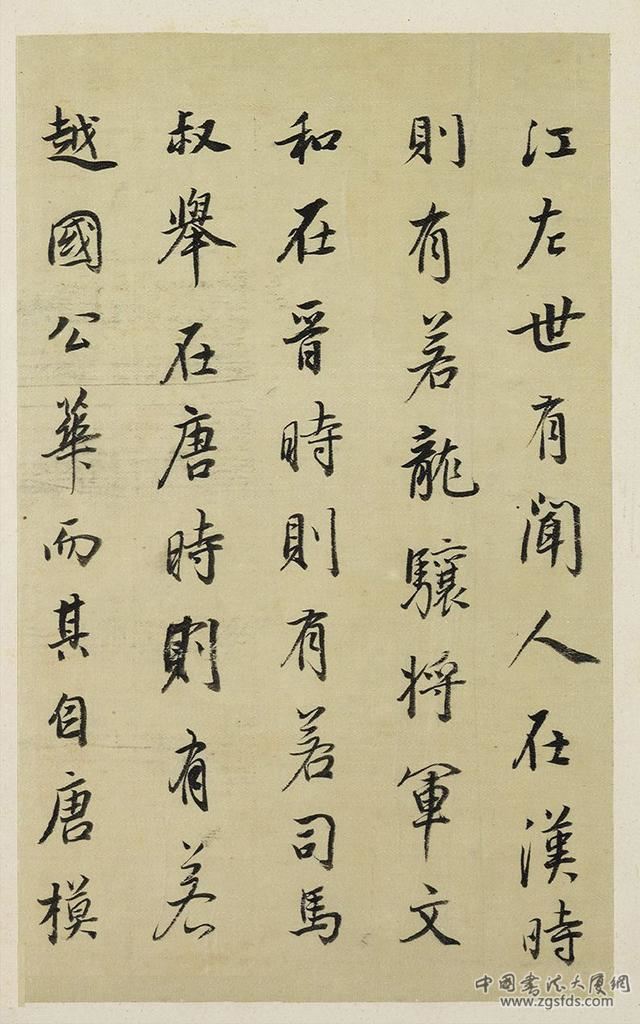 江左世有聞人在漢時
則有若龍驤將軍文
和在晉時則有若司馬
叔舉在唐時則有若
越國公華而其自唐模
中國书法大厦網
www.zgsfds.com